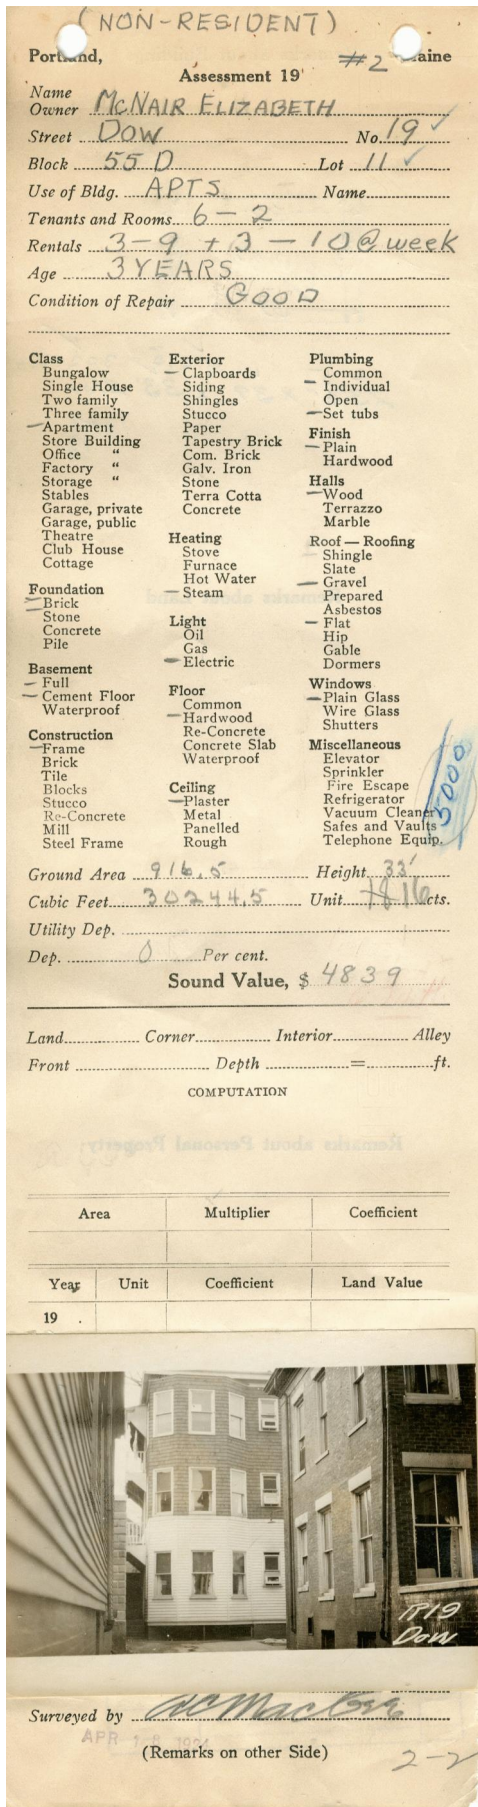 (NON-RESIDENT)
Portland, Maine
#2
Assessment 19
Name
Owner McNAIR ELIZABETH
Street DOW No. 19 ✓
Block 55 D Lot 11 ✓
Use of Bldg. APTS Name
Tenants and Rooms 6-2
Rentals 3-9 + 3-10 @ week
Age 3 YEARS
Condition of Repair GOOD
Class
Bungalow
Single House
Two family
Three family
Apartment
Store Building
Office "
Factory "
Storage "
Stables
Garage, private
Garage, public
Theatre
Club House
Cottage
Foundation
Brick
Stone
Concrete
Pile
Basement
Full
Cement Floor
Waterproof
Construction
Frame
Brick
Tile
Blocks
Stucco
Re-Concrete
Mill
Steel Frame
Exterior
Clapboards
Siding
Shingles
Stucco
Paper
Tapestry Brick
Com. Brick
Galv. Iron
Stone
Terra Cotta
Concrete
Heating
Stove
Furnace
Hot Water
Steam
Light
Oil
Gas
Electric
Floor
Common
Hardwood
Re-Concrete
Concrete Slab
Waterproof
Ceiling
Plaster
Metal
Panelled
Rough
Plumbing
Common
Individual
Open
Set tubs
Finish
Plain
Hardwood
Halls
Wood
Terrazzo
Marble
Roof — Roofing
Shingle
Slate
Gravel
Prepared
Asbestos
Flat
Hip
Gable
Dormers
Windows
Plain Glass
Wire Glass
Shutters
Miscellaneous
Elevator
Sprinkler
Fire Escape
Refrigerator
Vacuum Cleaner
Safes and Vaults
Telephone Equip.
5000
Ground Area 916.5 Height 33'
Cubic Feet 30244.5 Unit 16 cts.
Utility Dep.
Dep. 0 Per cent.
Sound Value, $ 4839
Land Corner Interior Alley
Front Depth = ft.
COMPUTATION
Area Multiplier Coefficient
Year Unit Coefficient Land Value
19
R19
Dow
Surveyed by
APR 18 1924
(Remarks on other Side)
2-2